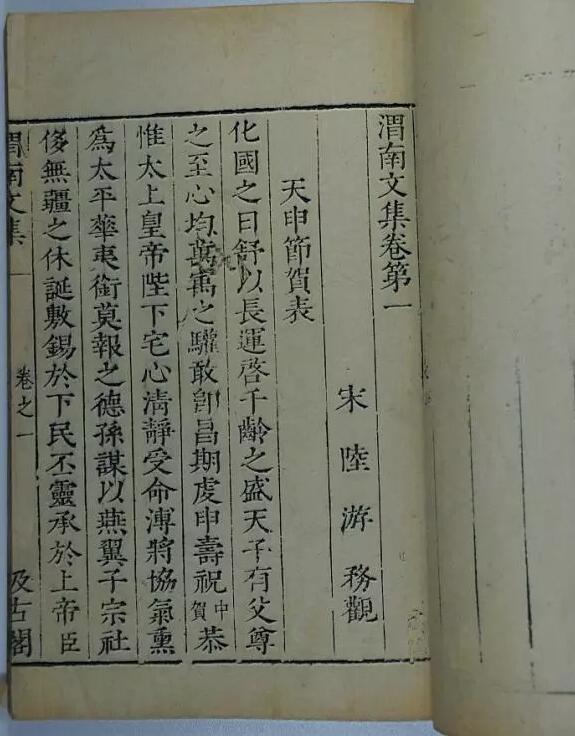 渭南文集卷第一
宋陸游務觀
天申節賀表
化國之日舒以長運啓千齡之盛天子有父尊
之至心均萬㝢之驩敢卽昌期虔申壽祝中賀恭
惟太上皇帝陛下宅心淸靜受命溥將協氣熏
爲太平華夷銜莫報之德孫謀以燕翼子宗社
侈無疆之休誕敷錫於下民丕靈承於上帝臣
渭南文集
卷之一
汲古閣